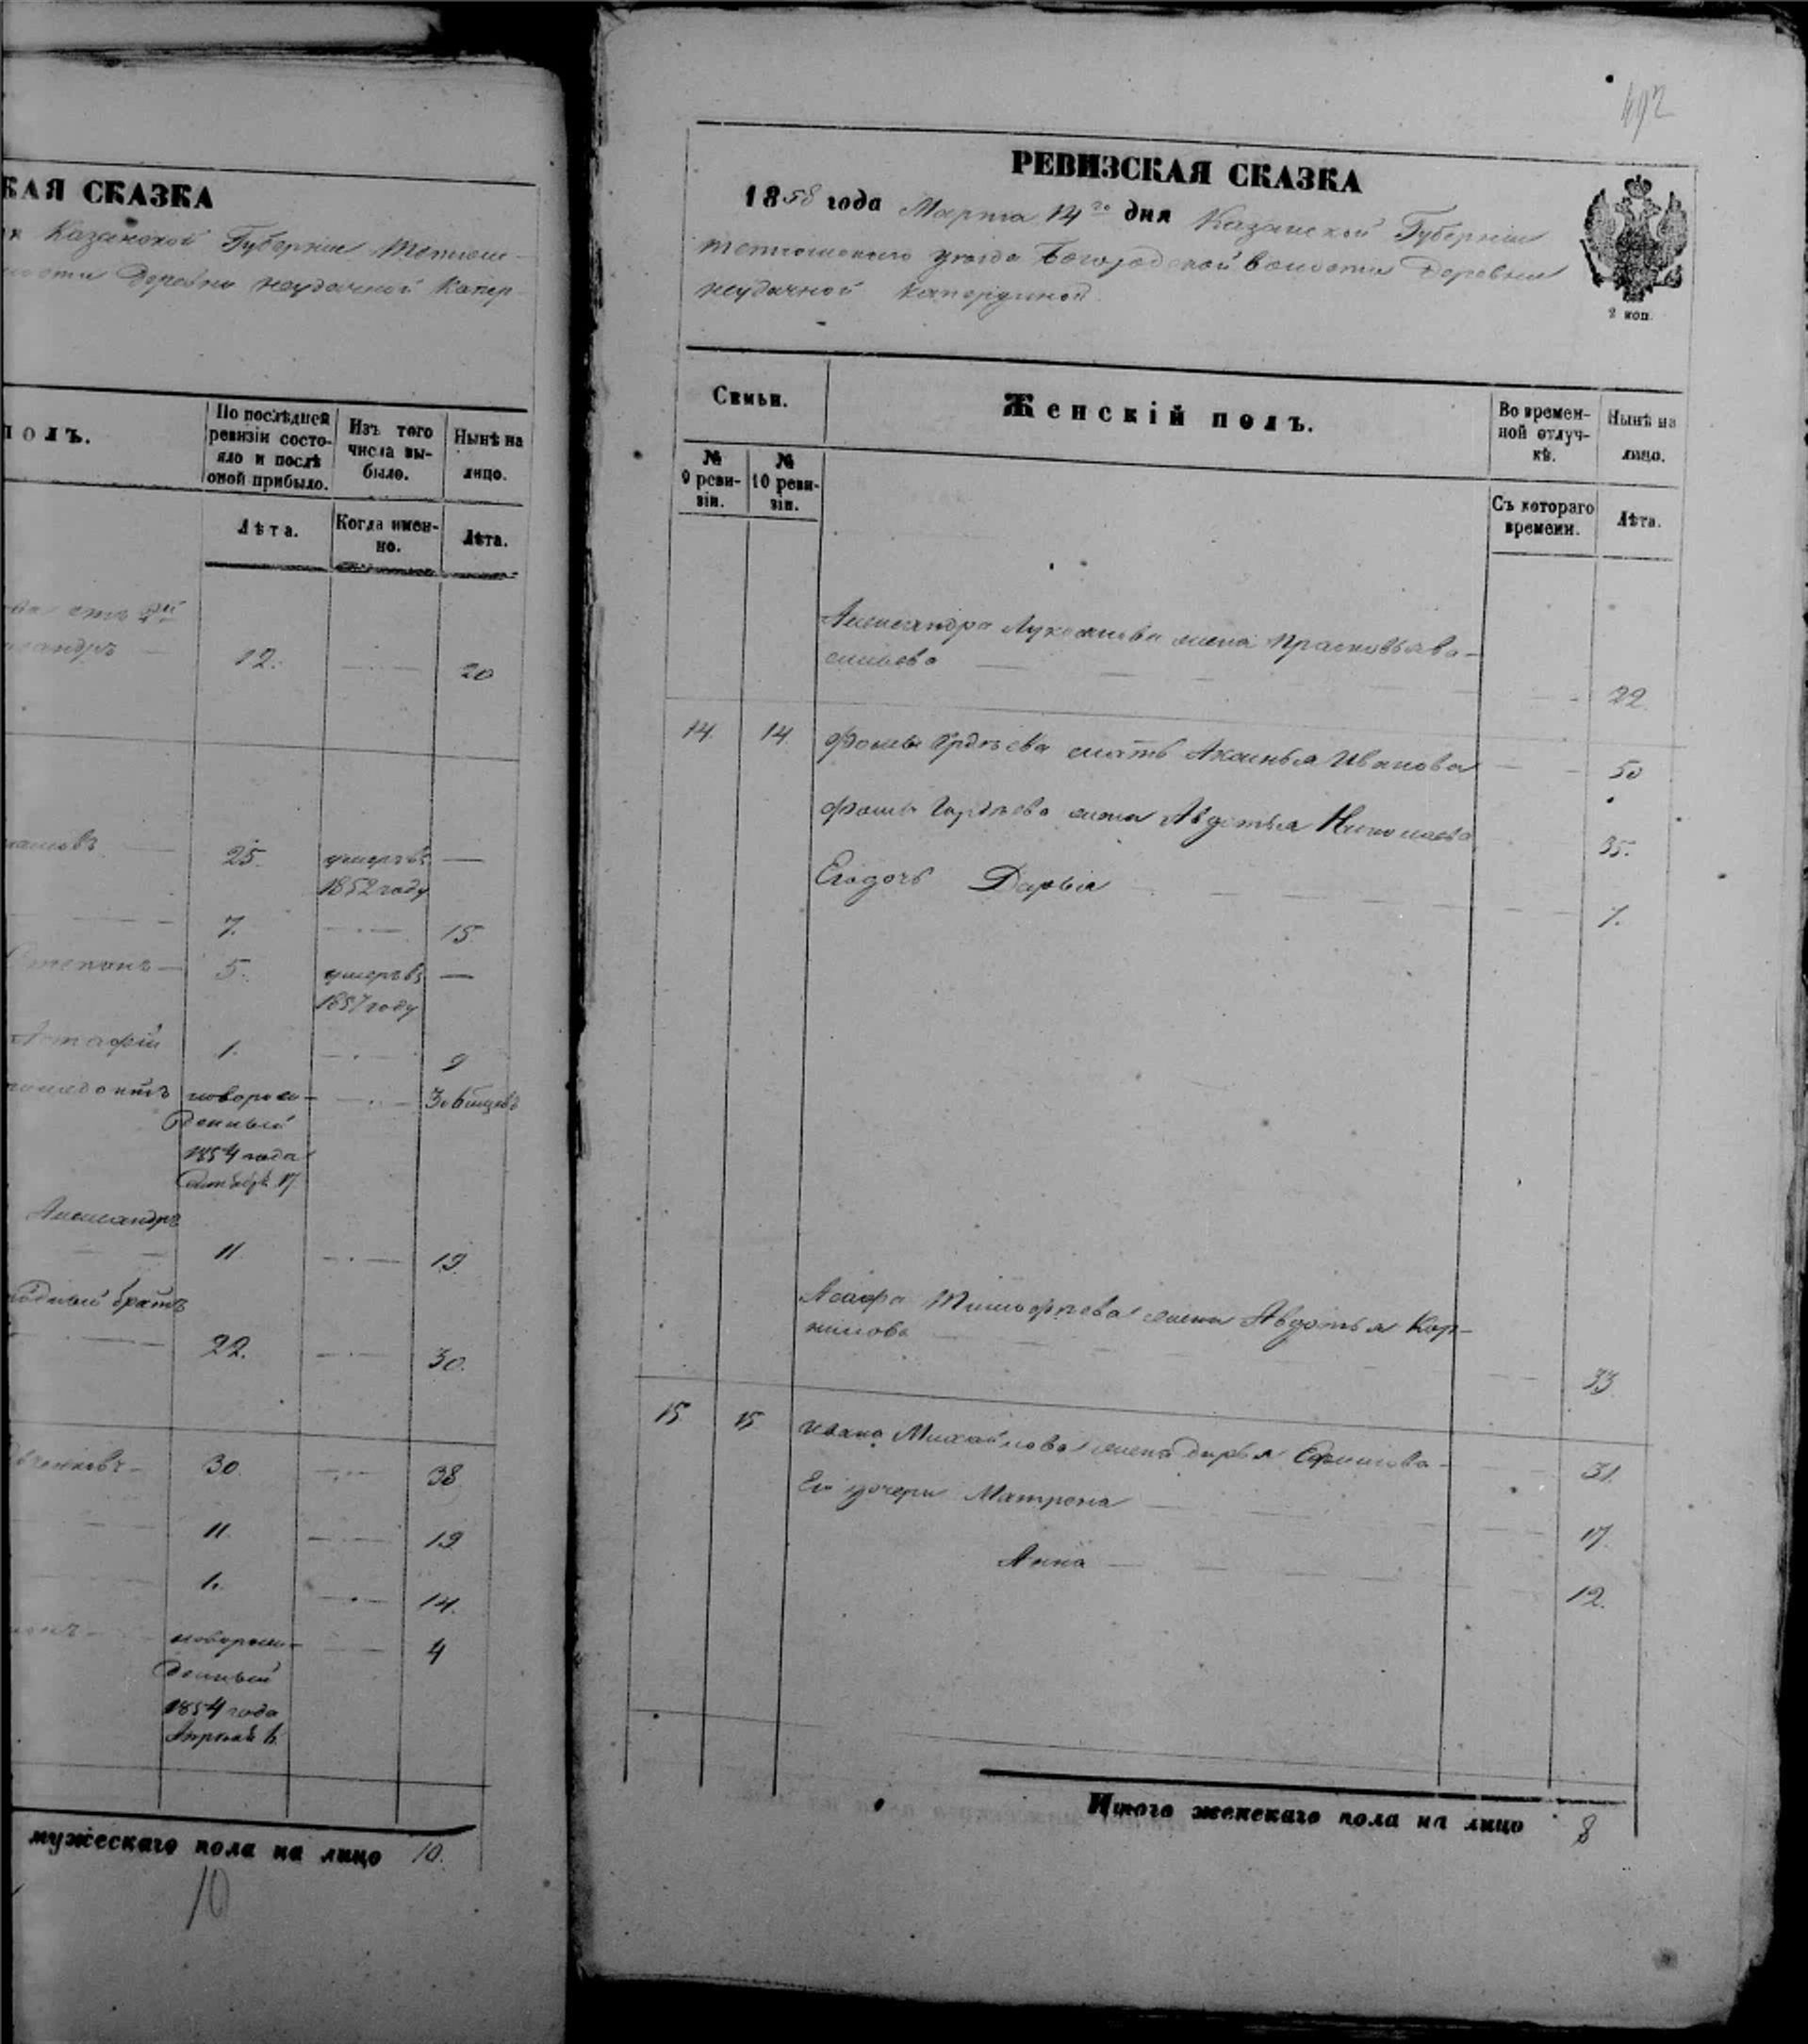 КАЯ СКАЗКА
Казанской Губернiи Тетюш-
Деревни Неудачной Капер-
полъ.
По послѣдней ревизiи состо-
яло и послѣ оной прибыло.
Изъ того числа вы-
было.
Нынѣ на лицо.
Лѣта.
Когда имен-
но.
Лѣта.
12. 20
25. умеръ въ —
1852 году
7. 15
Степанъ — 5. умеръ въ —
1857 году
Астафiй 1. 9
новорож-
денный
1854 года
Александръ
11 19
родный братъ
22. 30.
30. 38
11 19
1. 14.
новорож- 4
денный
1854 года
Апреля
мужескаго пола на лицо 10.
10
492
РЕВИЗСКАЯ СКАЗКА
1858 года Марта 14го дня Казанской Губернiи
Тетюшскаго уѣзда Богородской волости Деревни
Неудачной Капердиной
2 коп.
Семьи.
Женскiй полъ.
Во времен-
ной отлуч-
кѣ.
Нынѣ на
лицо.
№
9 реви-
зiи.
№
10 реви-
зiи.
Съ котораго
времени.
Лѣта.
Александра Лукоянова жена Прасковья Ва-
сильева 22.
14. 14. Фомы Гордѣева мать Аксинья Иванова 50
Фомы Гордѣева жена Авдотья Николаева 35.
Его дочь Дарья 7.
Тимофѣева жена Авдотья Кор-
нилова 33
15 15 Ивана Михайлова жена Дарья Ефимова 31.
Его дочери Матрена 17.
Анна 12.
Итого женскаго пола на лицо 8